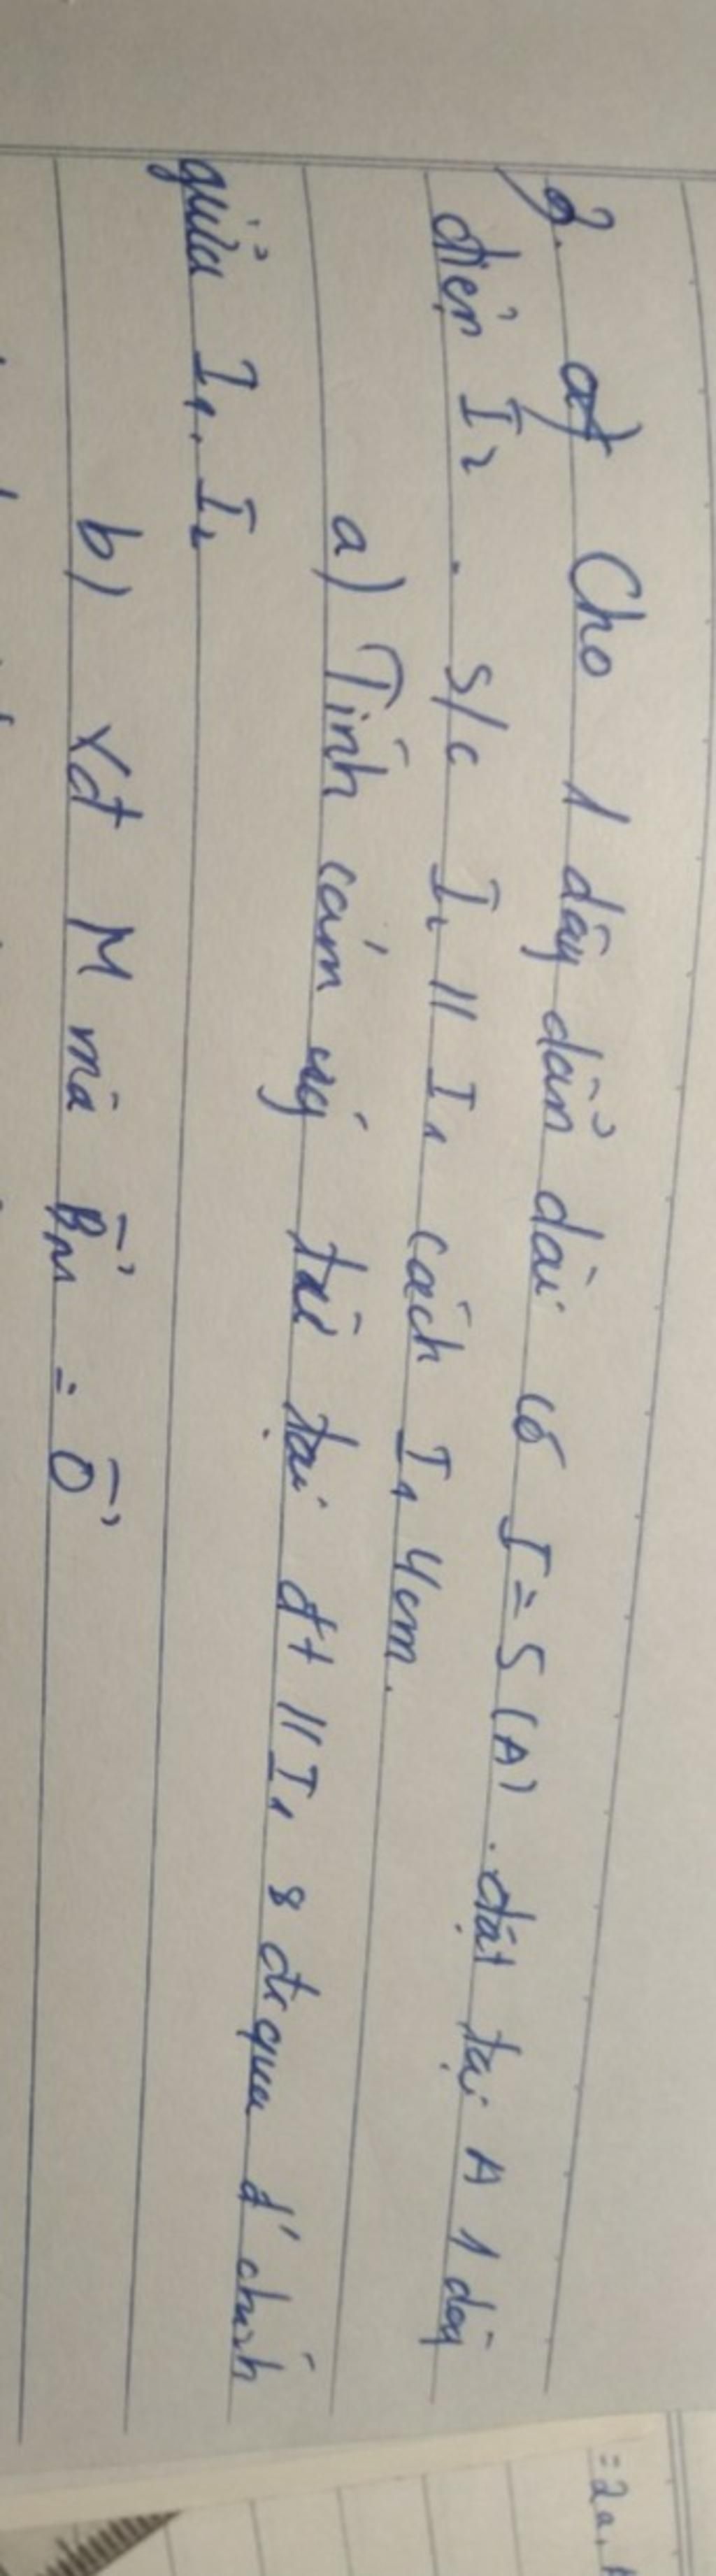 3. a) Cho 1 dây dẫn dài có I = 5 (A). đặt tại A 1 dây
điện I2. s/c I2 // I1 cách I1 4cm.
a) Tính cảm ứng tại đt // I1 & đi qua đ' chính
giữa I1, I2
b) Xđ M mà B⃗M = 0⃗
= 2a,